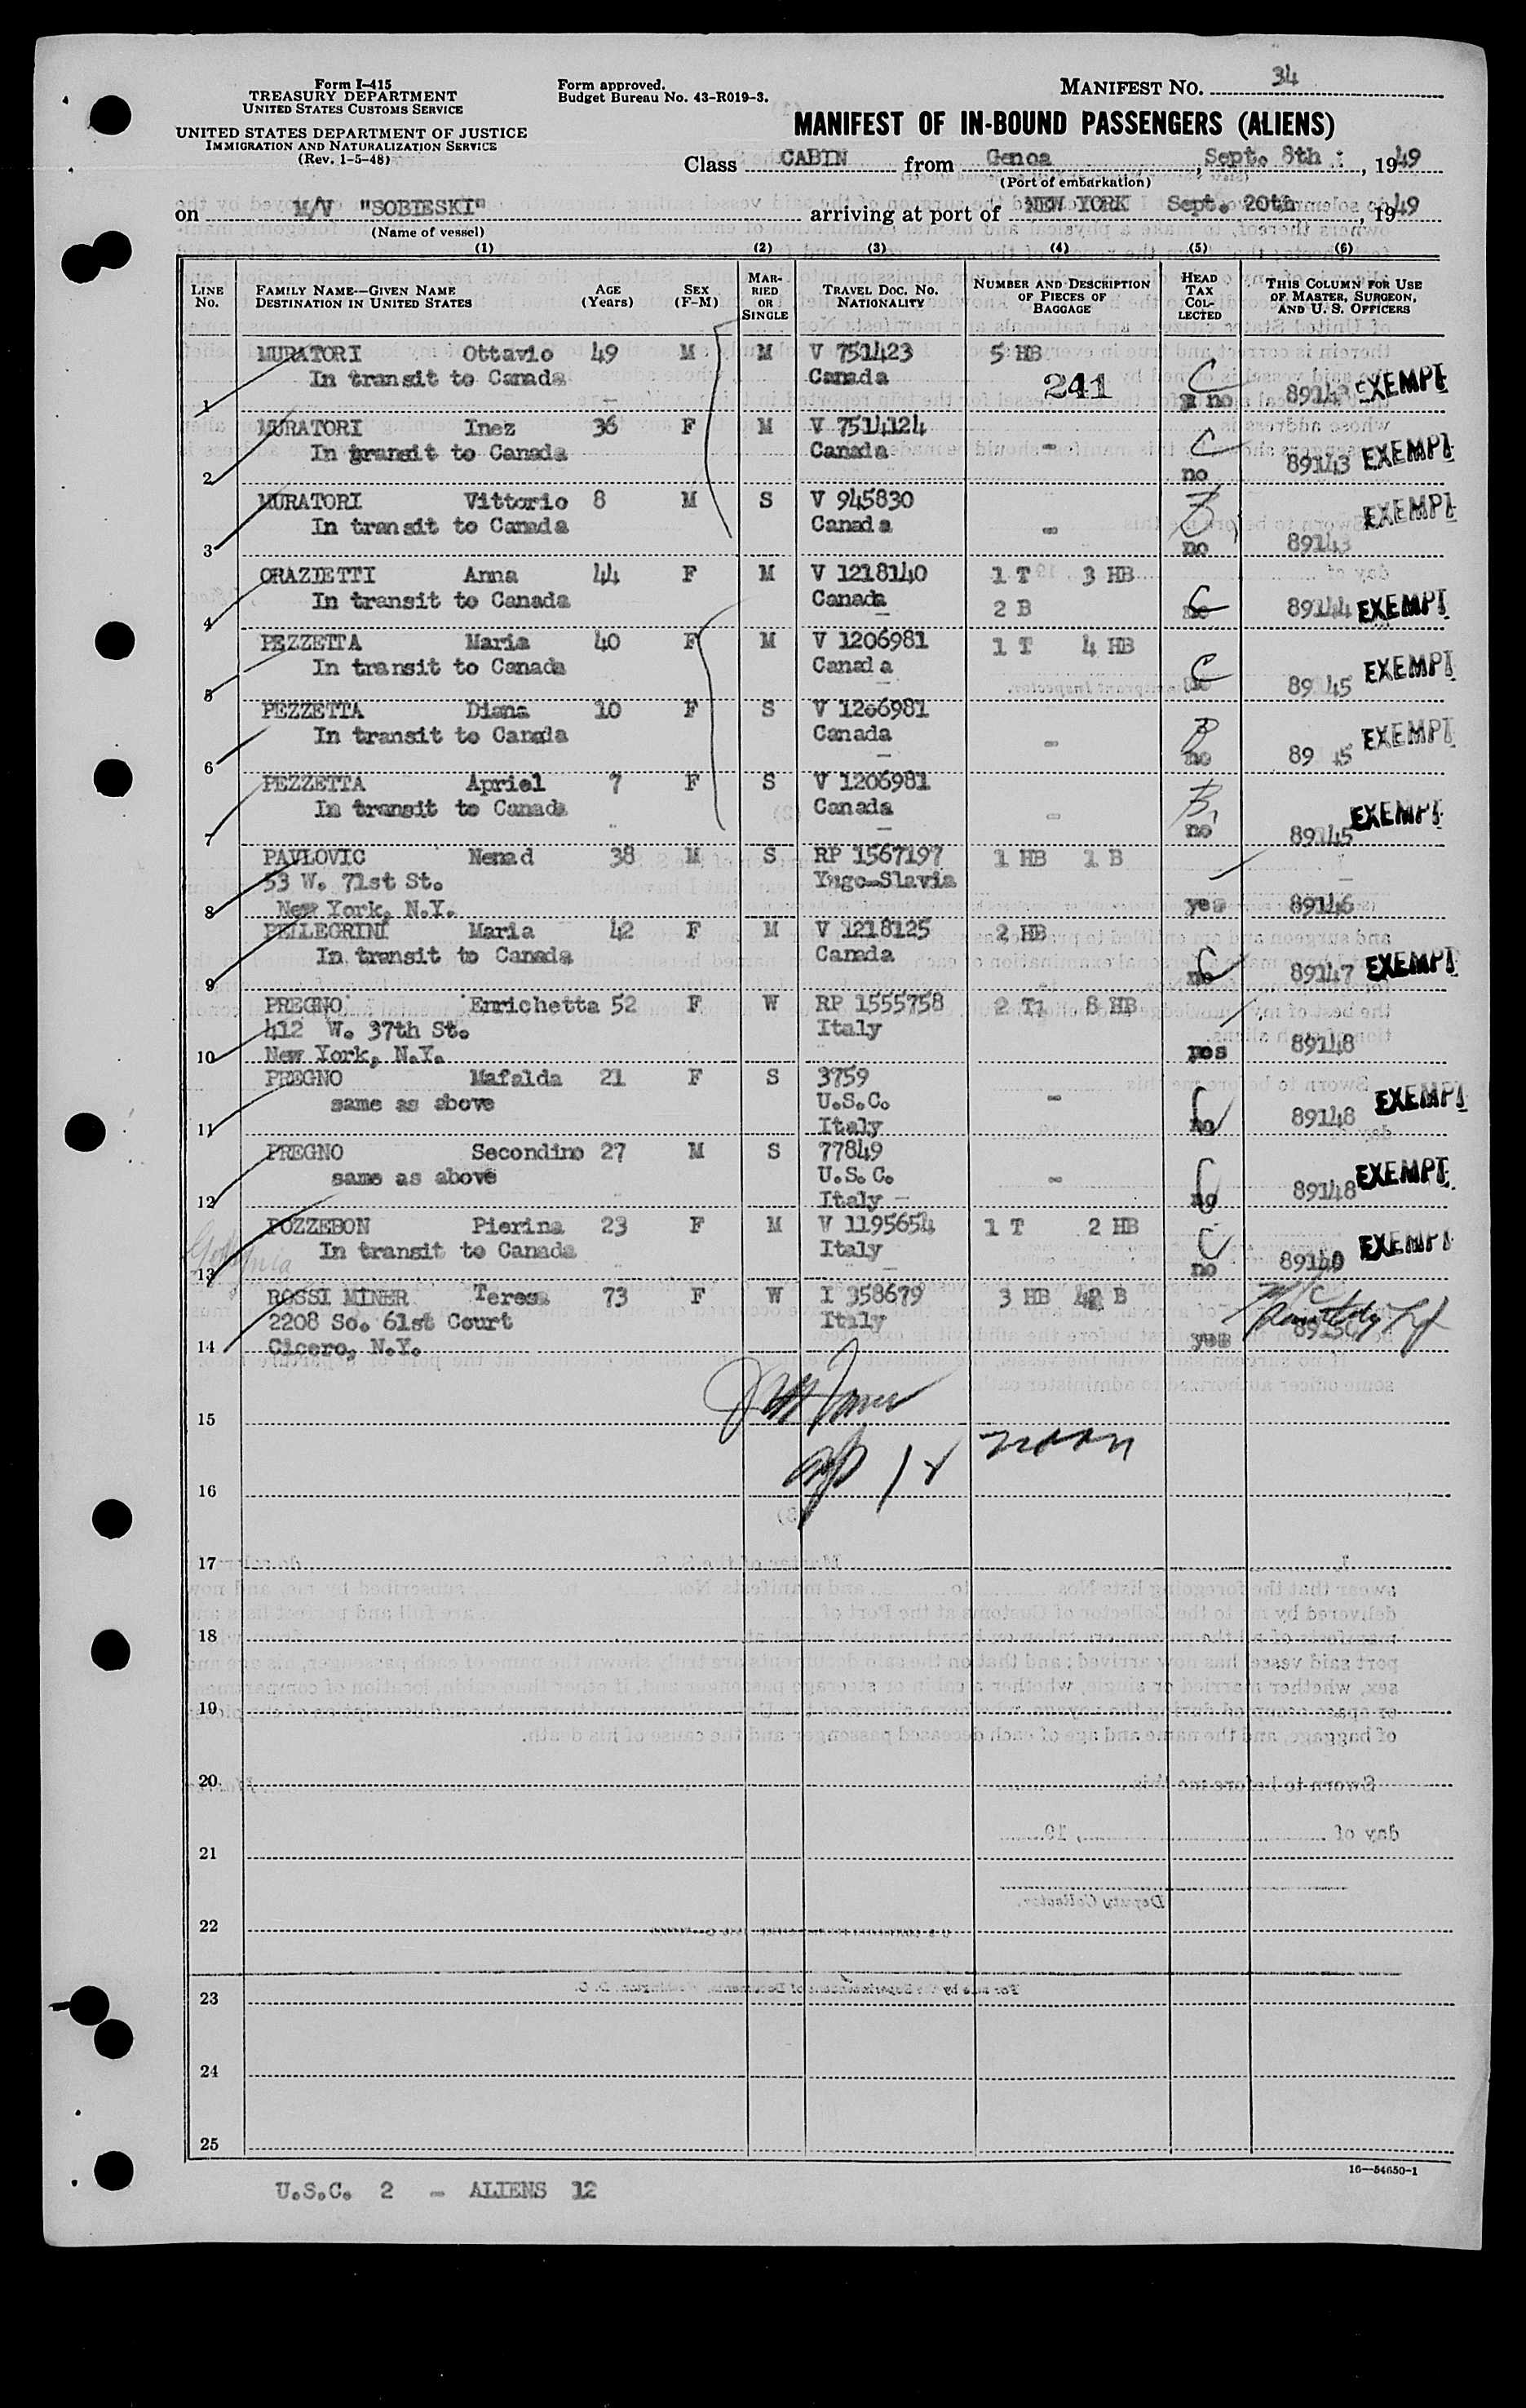 Form I-415
TREASURY DEPARTMENT
UNITED STATES CUSTOMS SERVICE
UNITED STATES DEPARTMENT OF JUSTICE
IMMIGRATION AND NATURALIZATION SERVICE
(Rev. 1-5-48)
Form approved.
Budget Bureau No. 43-R019-3.
MANIFEST NO. 34
MANIFEST OF IN-BOUND PASSENGERS (ALIENS)
Class CABIN from Genoa, Sept. 8th :, 1949
(Port of embarkation)
on M/V "SOBIESKI" arriving at port of NEW YORK Sept. 20th, 1949
(Name of vessel)
(1) (2) (3) (4) (5) (6)
LINE No. FAMILY NAME—GIVEN NAME DESTINATION IN UNITED STATES AGE (Years) SEX (F-M) MARRIED OR SINGLE TRAVEL DOC. NO. NATIONALITY NUMBER AND DESCRIPTION OF PIECES OF BAGGAGE HEAD TAX COLLECTED THIS COLUMN FOR USE OF MASTER, SURGEON, AND U. S. OFFICERS
MURATORI Ottavio 49 M M V 751423 5 HB
In transit to Canada Canada 241 C
1 no 89143 EXEMPT
MURATORI Inez 36 F M V 7514124
In transit to Canada Canada - C
2 no 89143 EXEMPT
MURATORI Vittorio 8 M S V 945830
In transit to Canada Canada - B
3 no 89143 EXEMPT
ORAZIETTI Anna 44 F M V 1218140 1 T 3 HB
In transit to Canada Canada 2 B
4 no C 89144 EXEMPT
PEZZETTA Maria 40 F M V 1206981 1 T 4 HB
In transit to Canada Canada C
5 89 45 EXEMPT
PEZZETTA Diana 10 F S V 1206981
In transit to Canada Canada - B
6 no 89 45 EXEMPT
PEZZETTA Apriel 7 F S V 1206981
In transit to Canada Canada - B
7 no 89145 EXEMPT
PAVLOVIC Nenad 38 M S RP 1567197 1 HB 1 B
53 W. 71st St. Yugo-Slavia
8 New York, N.Y. yes 89146
PELLEGRINI Maria 42 F M V 1218125 2 HB
In transit to Canada Canada C
9 no 89147 EXEMPT
PREGNO Enrichetta 52 F W RP 1555758 2 T1 8 HB
412 W. 37th St. Italy
10 New York, N.Y. yes 89148
PREGNO Mafalda 21 F S 3759
same as above U.S.C. - C
11 Italy no 89148 EXEMPT
PREGNO Secondino 27 M S 77849
same as above U.S.C. - C
12 Italy no 89148 EXEMPT
POZZEBON Pierina 23 F M V 1195654 1 T 2 HB
In transit to Canada Italy C
13 no 89140 EXEMPT
ROSSI MINER Teresa 73 F W I 358679 3 HB 42 B
2208 So. 61st Court Italy
14 Cicero, N.Y. yes
15
noon
16
17
18
19
20
21
22
23
24
25
16—54650-1
U.S.C. 2 - ALIENS 12